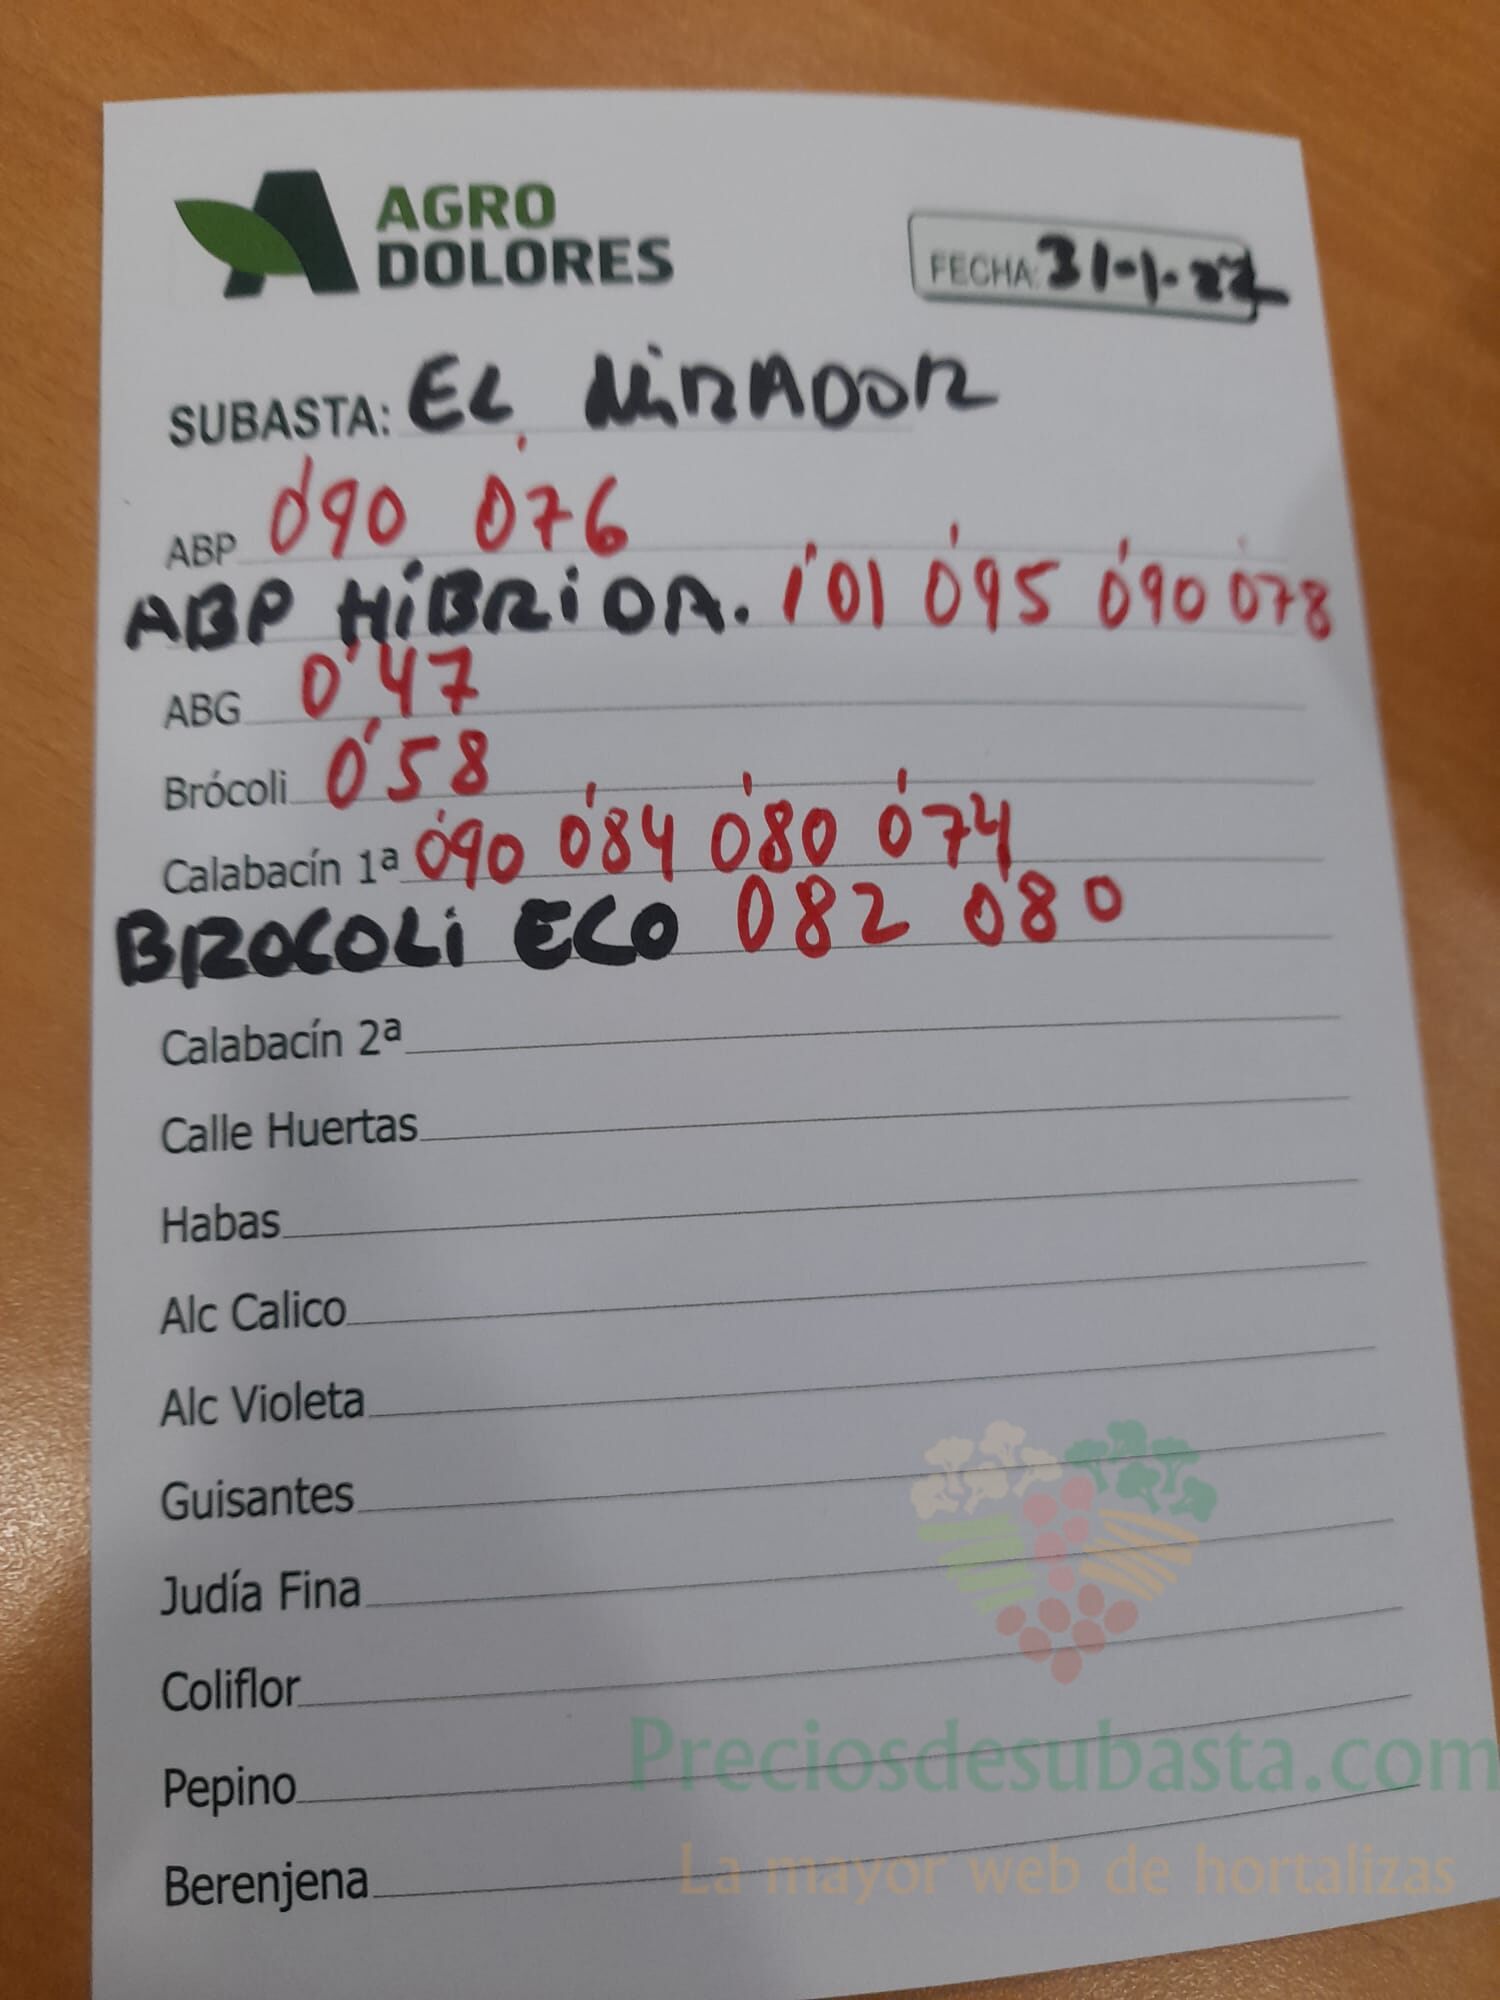 AGRO
DOLORES
FECHA: 31-1-22
SUBASTA: EL MIRADOR
ABP 0'90 0'76
ABP HÍBRIDA. 1'01 0'95 0'90 0'78
ABG 0'47
Brócoli 0'58
Calabacín 1ª 0'90 0'84 0'80 0'74
BROCOLI ECO 082 0'80
Calabacín 2ª
Calle Huertas
Habas
Alc Calico
Alc Violeta
Guisantes
Judía Fina
Coliflor
Pepino
Berenjena
Preciosdesubasta.com
La mayor web de hortalizas